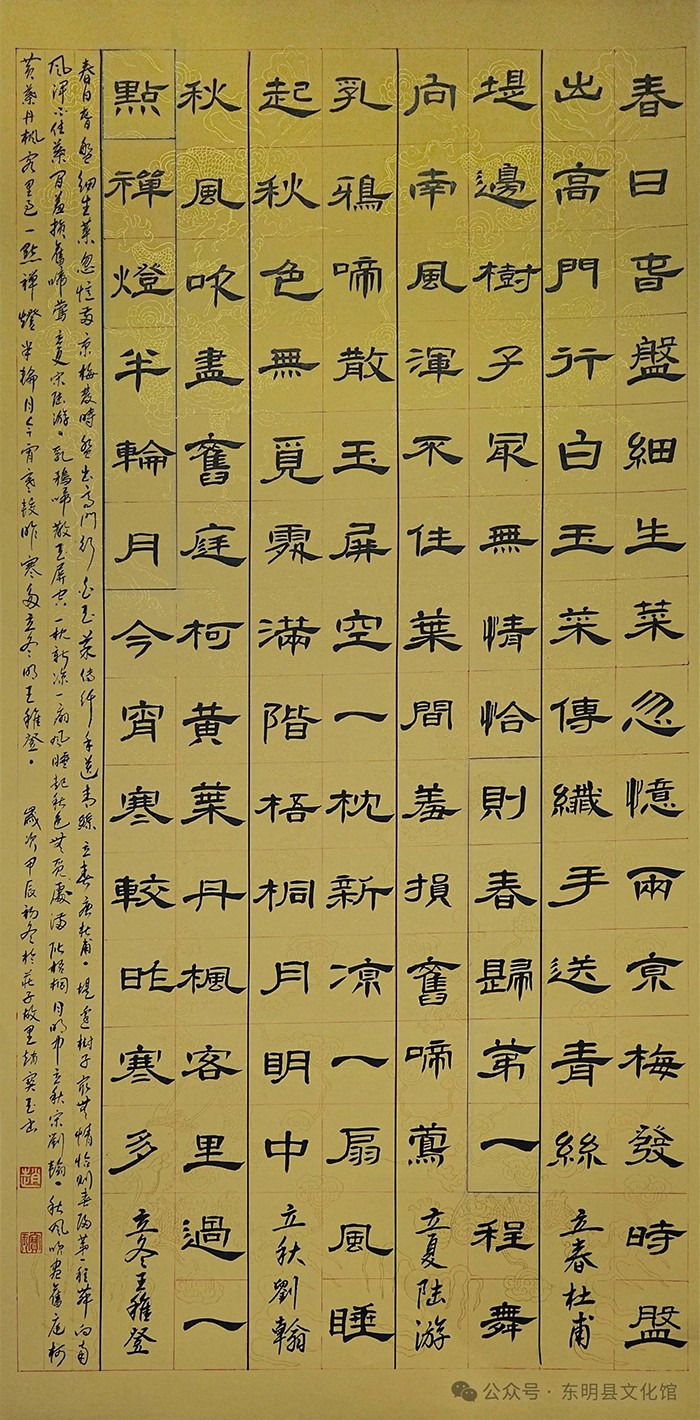 春日春盤細生菜忽憶兩京梅發時盤
出高門行白玉菜傳纖手送青絲 立春杜甫
堤邊樹子最無情恰則春歸第一程舞
向南風渾不住葉間羞損舊啼鶯 立夏陆游
乳鴉啼散玉屏空一枕新凉一扇風睡
起秋色無覓處滿階梧桐月明中 立秋劉翰
秋風吹盡舊庭柯黃葉丹楓客里過一
點禪燈半輪月今宵寒較昨寒多 立冬王穉登
春日春盤細生菜忽憶兩京梅發時盤出高門行白玉菜傳纤手送青絲立春唐杜甫。堤邊樹子最無情恰則春歸第一程舞向南
風渾不住葉間羞損舊啼鶯立夏宋陆游。乳鴉啼散玉屏空一枕新凉一扇風睡起秋色無覓處滿階梧桐月明中立秋宋劉翰。秋風吹盡舊庭柯
黃葉丹楓客里過一點禪燈半輪月今宵寒較昨寒多立冬明王穉登。 歲次甲辰初冬於莊子故里趙寶玉書
公众号·东明县文化馆